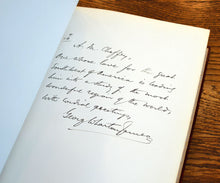 To
A. M. Chaffey,
One whose love for the great
Southwest of America is leading
him into a study of the most
wonderful region of the world,
with cordial greetings,
George Wharton James